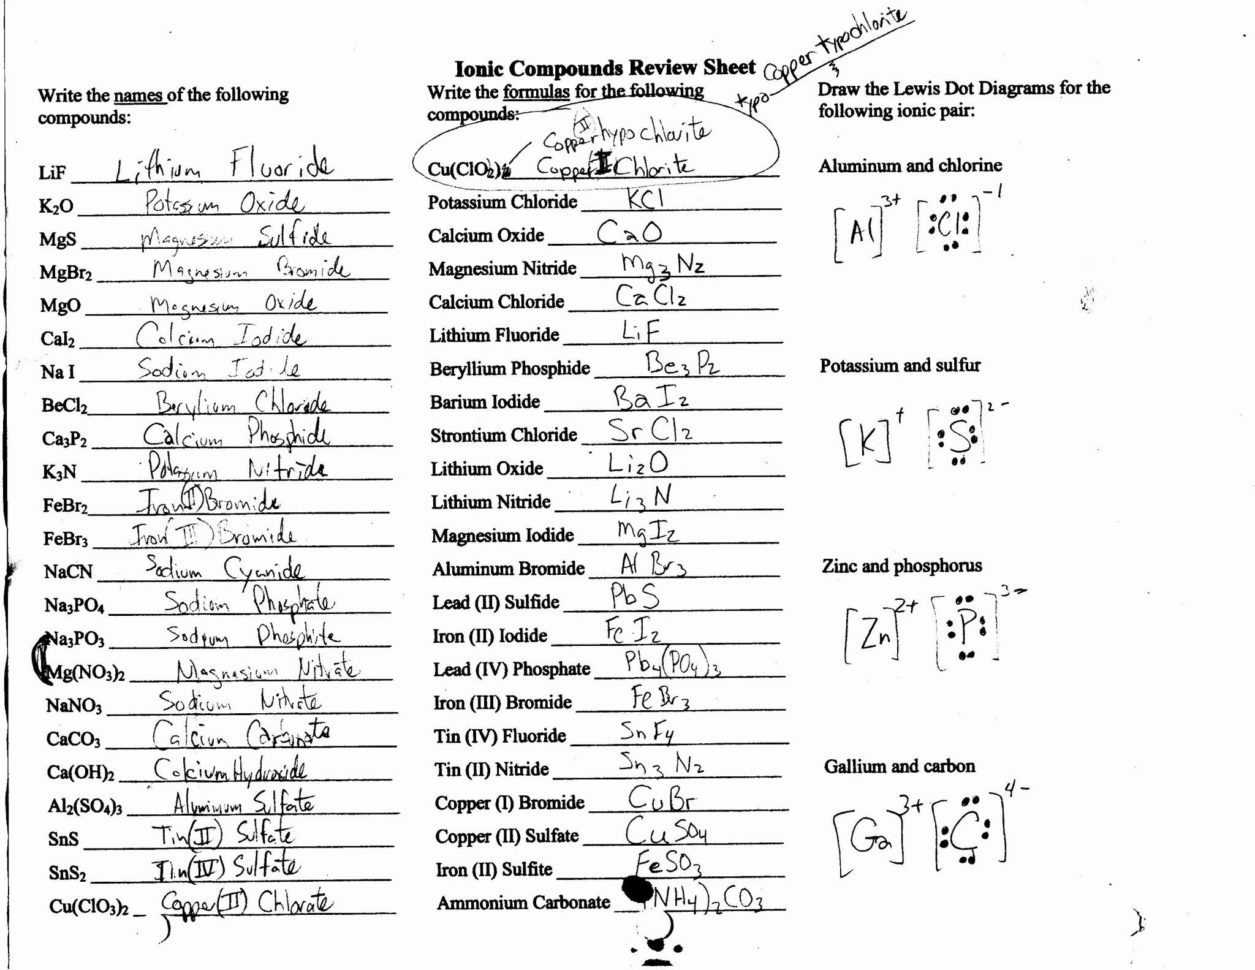 Ionic Compounds Review Sheet
Write the names of the following
compounds:
LiF Lithium Fluoride
K₂O Potassium Oxide
MgS Magnesium Sulfide
MgBr₂ Magnesium Bromide
MgO Magnesium Oxide
CaI₂ Calcium Iodide
Na I Sodium
BeCl₂ Berylium Chloride
Ca₃P₂ Calcium Phosphide
K₃N Potassium Nitride
FeBr₂ Iron(II) Bromide
FeBr₃ Iron(III) Bromide
NaCN Sodium Cyanide
Na₃PO₄ Sodium Phosphate
Na₃PO₃ Sodium Phosphite
Mg(NO₃)₂ Magnesium Nitrate
NaNO₃ Sodium Nitrate
CaCO₃ Calcium Carbonate
Ca(OH)₂ Calcium Hydroxide
Al₂(SO₄)₃ Aluminum Sulfate
SnS Tin(II) Sulfate
SnS₂ Tin(IV) Sulfate
Cu(ClO₃)₂ Copper(II) Chlorate
Write the formulas for the following
compounds:
typo Copper hypochlorite
Copper(II) hypochlorite
Cu(ClO₂)₂ Copper II Chlorite
Potassium Chloride KCl
Calcium Oxide CaO
Magnesium Nitride Mg₃N₂
Calcium Chloride CaCl₂
Lithium Fluoride LiF
Beryllium Phosphide Be₃P₂
Barium Iodide BaI₂
Strontium Chloride SrCl₂
Lithium Oxide Li₂O
Lithium Nitride Li₃N
Magnesium Iodide MgI₂
Aluminum Bromide AlBr₃
Lead (II) Sulfide PbS
Iron (II) Iodide FeI₂
Lead (IV) Phosphate Pb₄(PO₄)₃
Iron (III) Bromide FeBr₃
Tin (IV) Fluoride SnF₄
Tin (II) Nitride Sn₃N₂
Copper (I) Bromide CuBr
Copper (II) Sulfate CuSO₄
Iron (II) Sulfite FeSO₃
Ammonium Carbonate (NH₄)₂CO₃
Draw the Lewis Dot Diagrams for the
following ionic pair:
Aluminum and chlorine
[Al]³⁺ [Cl]⁻¹
Potassium and sulfur
[K]⁺ [S]²⁻
Zinc and phosphorus
[Zn]²⁺ [P]³⁻
Gallium and carbon
[Ga]³⁺ [C]⁴⁻